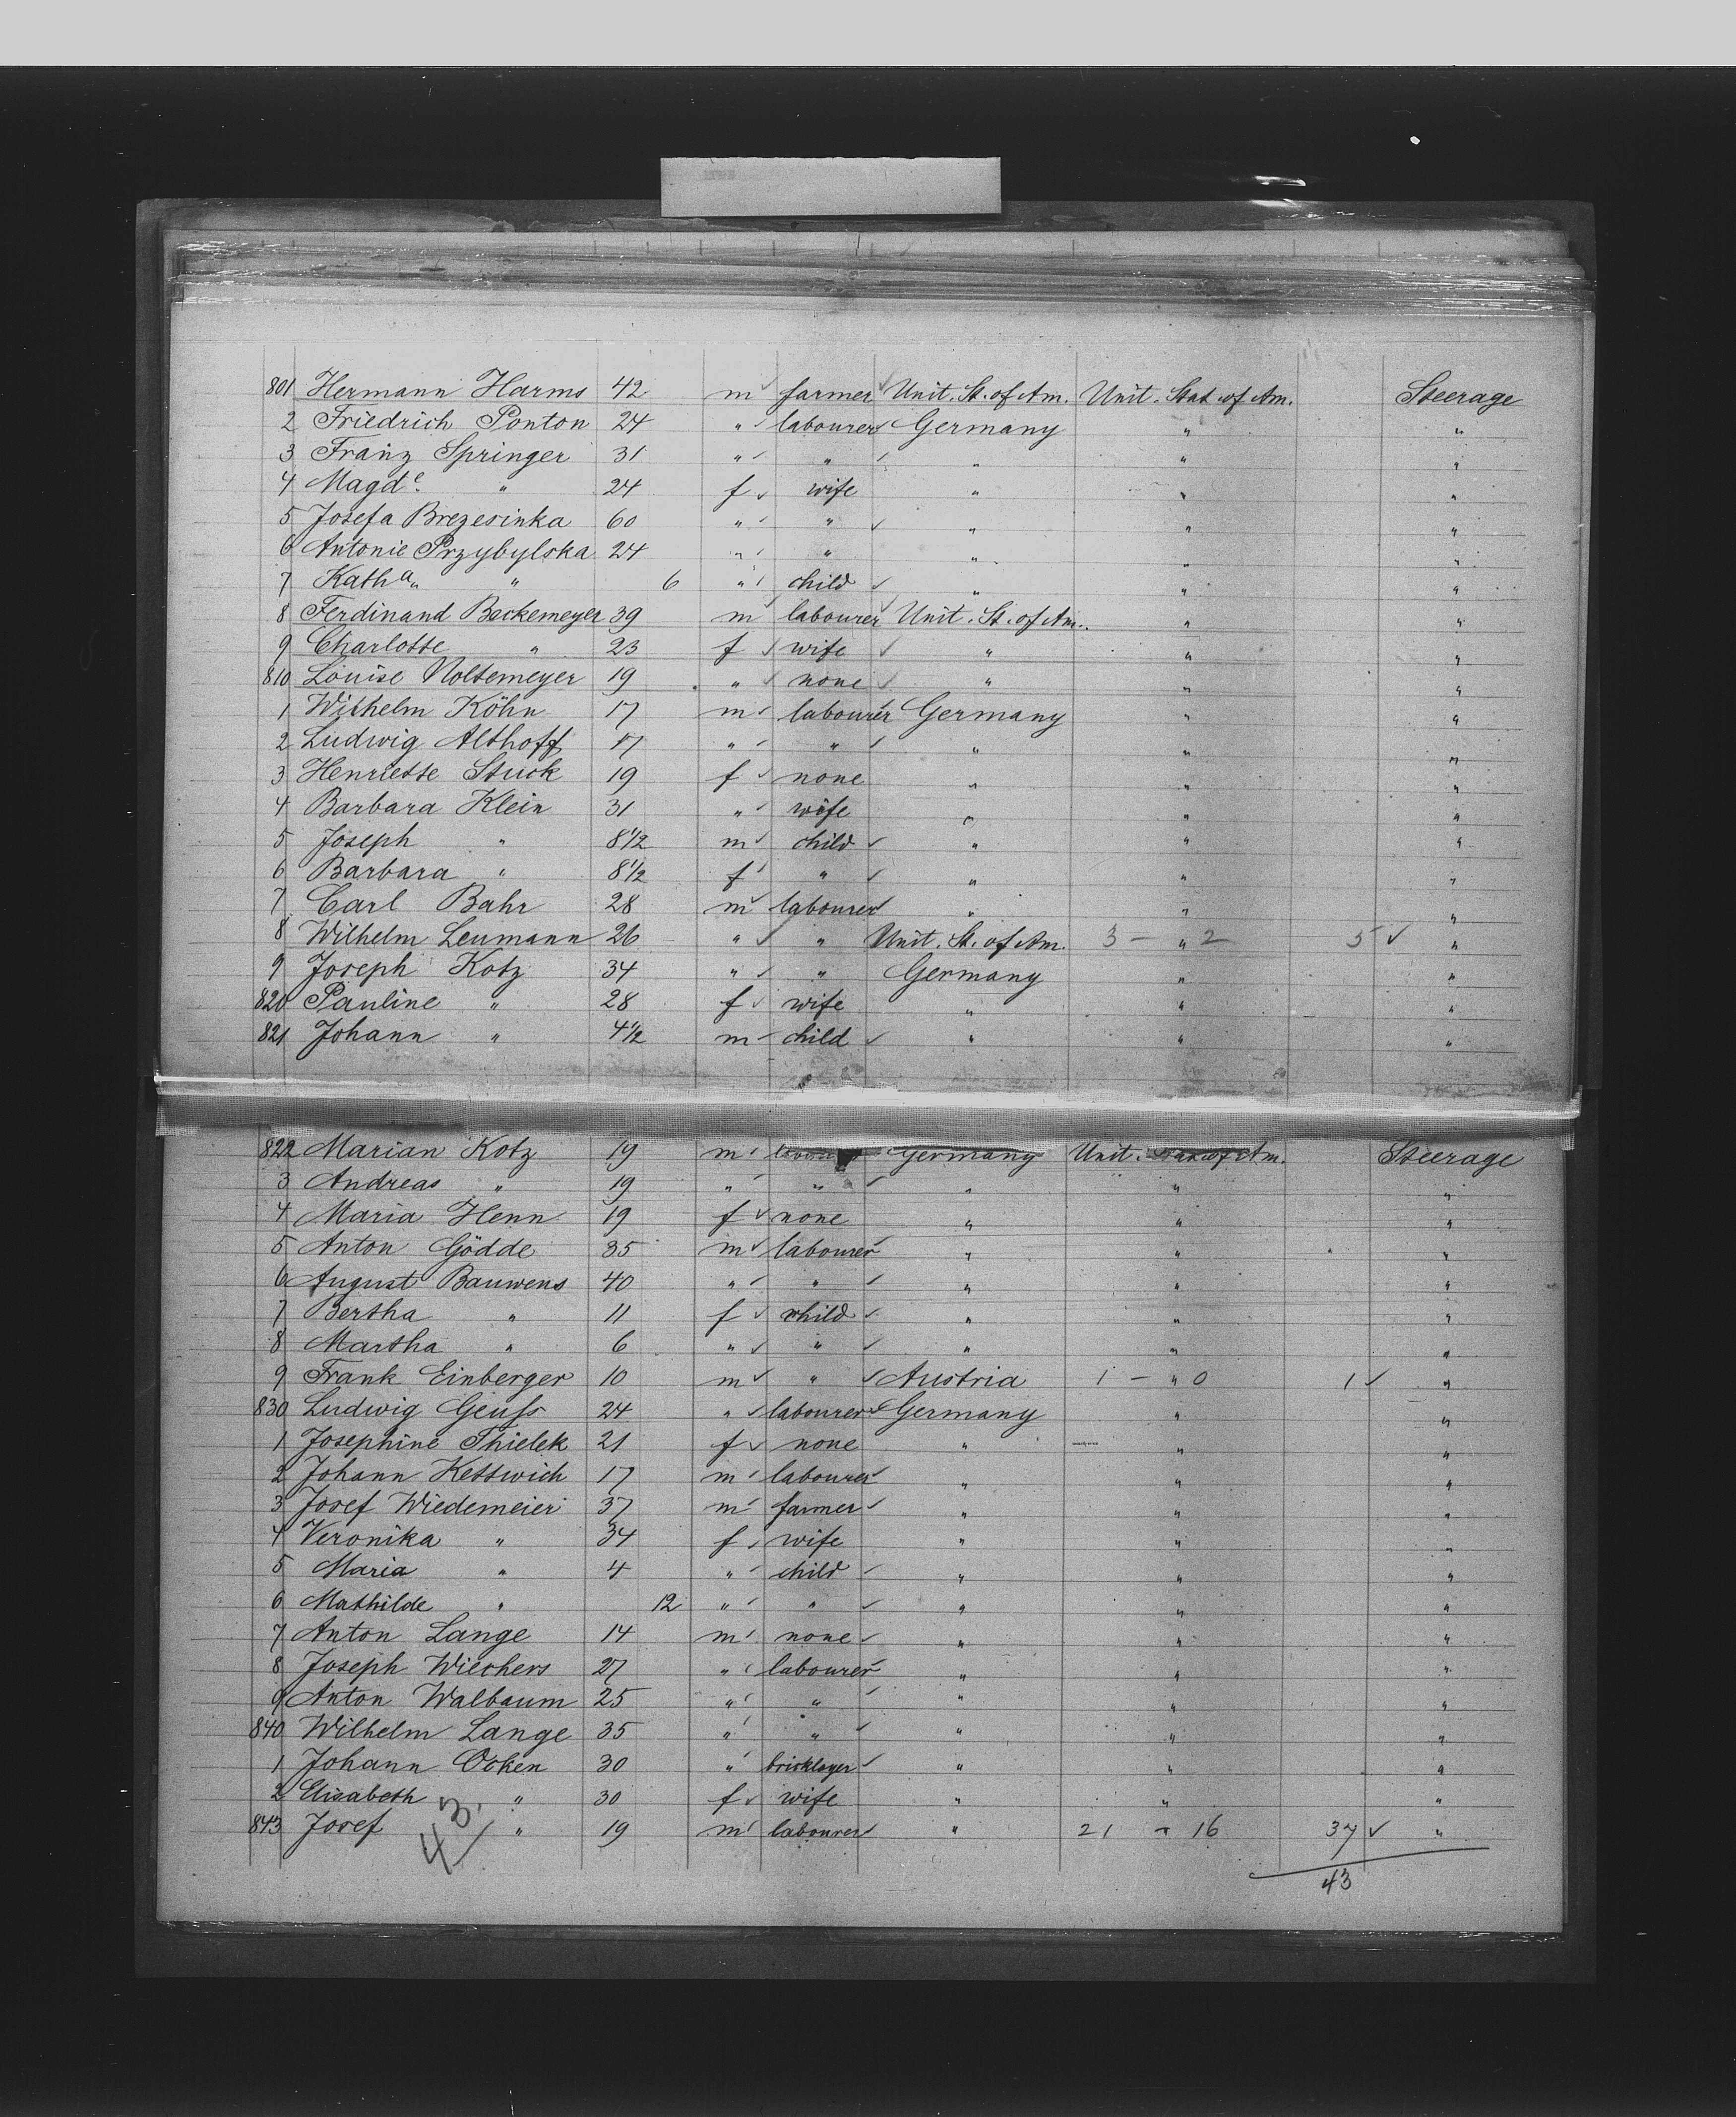 801 Hermann Harms 42 m farmer Unit. St. of Am. Unit. Stat. of Am. Steerage
2 Friedrich Ponton 24 " labourer Germany " "
3 Franz Springer 31 " " " " "
4 Magde. " 24 f wife " " "
5 Josefa Brezesinka 60 " " " " "
6 Antonie Przybylska 24 " " " " "
7 Katha. " 6 " child " " "
8 Ferdinand Beckemeyer 39 m labourer Unit. St. of Am. " "
9 Charlotte " 23 f wife " " "
810 Louise Noltemeyer 19 " none " " "
1 Wilhelm Köhn 17 m labourer Germany " "
2 Ludwig Althoff 17 " " " " "
3 Henriette Stuck 19 f none " " "
4 Barbara Klein 31 " wife " " "
5 Joseph " 8 1/2 m child " " "
6 Barbara " 8 1/2 f " " " "
7 Carl Bahr 28 m labourer " " "
8 Wilhelm Leumann 26 " " Unit. St. of Am. 3 - " 2 5 ✓ "
9 Joseph Kotz 34 " " Germany " "
820 Pauline " 28 f wife " " "
821 Johann " 4 1/2 m child " " "
822 Marian Kotz 19 m Germany Unit. Stat. of Am. Steerage
3 Andreas " 19 " " " " "
4 Maria Henn 19 f none " " "
5 Anton Gödde 35 m labourer " " "
6 August Bauwens 40 " " " " "
7 Bertha " 11 f child " " "
8 Martha " 6 " " " " "
9 Frank Einberger 10 m " Austria 1 - " 0 1 ✓ "
830 Ludwig Geuss 24 " labourer Germany " "
1 Josephine Thielek 21 f none " " "
2 Johann Kettwich 17 m labourer " " "
3 Josef Wiedemeier 37 m farmer " " "
4 Veronika " 34 f wife " " "
5 Maria " 4 " child " " "
6 Mathilde " 12 " " " " "
7 Anton Lange 14 m none " " "
8 Joseph Wiechers 27 " labourer " " "
9 Anton Walbaum 25 " " " " "
840 Wilhelm Lange 35 " " " " "
1 Johann Ocken 30 " bricklayer " " "
2 Elisabeth " 30 f wife " " "
843 Josef " 19 m labourer " 21 - 16 37 ✓ "
43
43